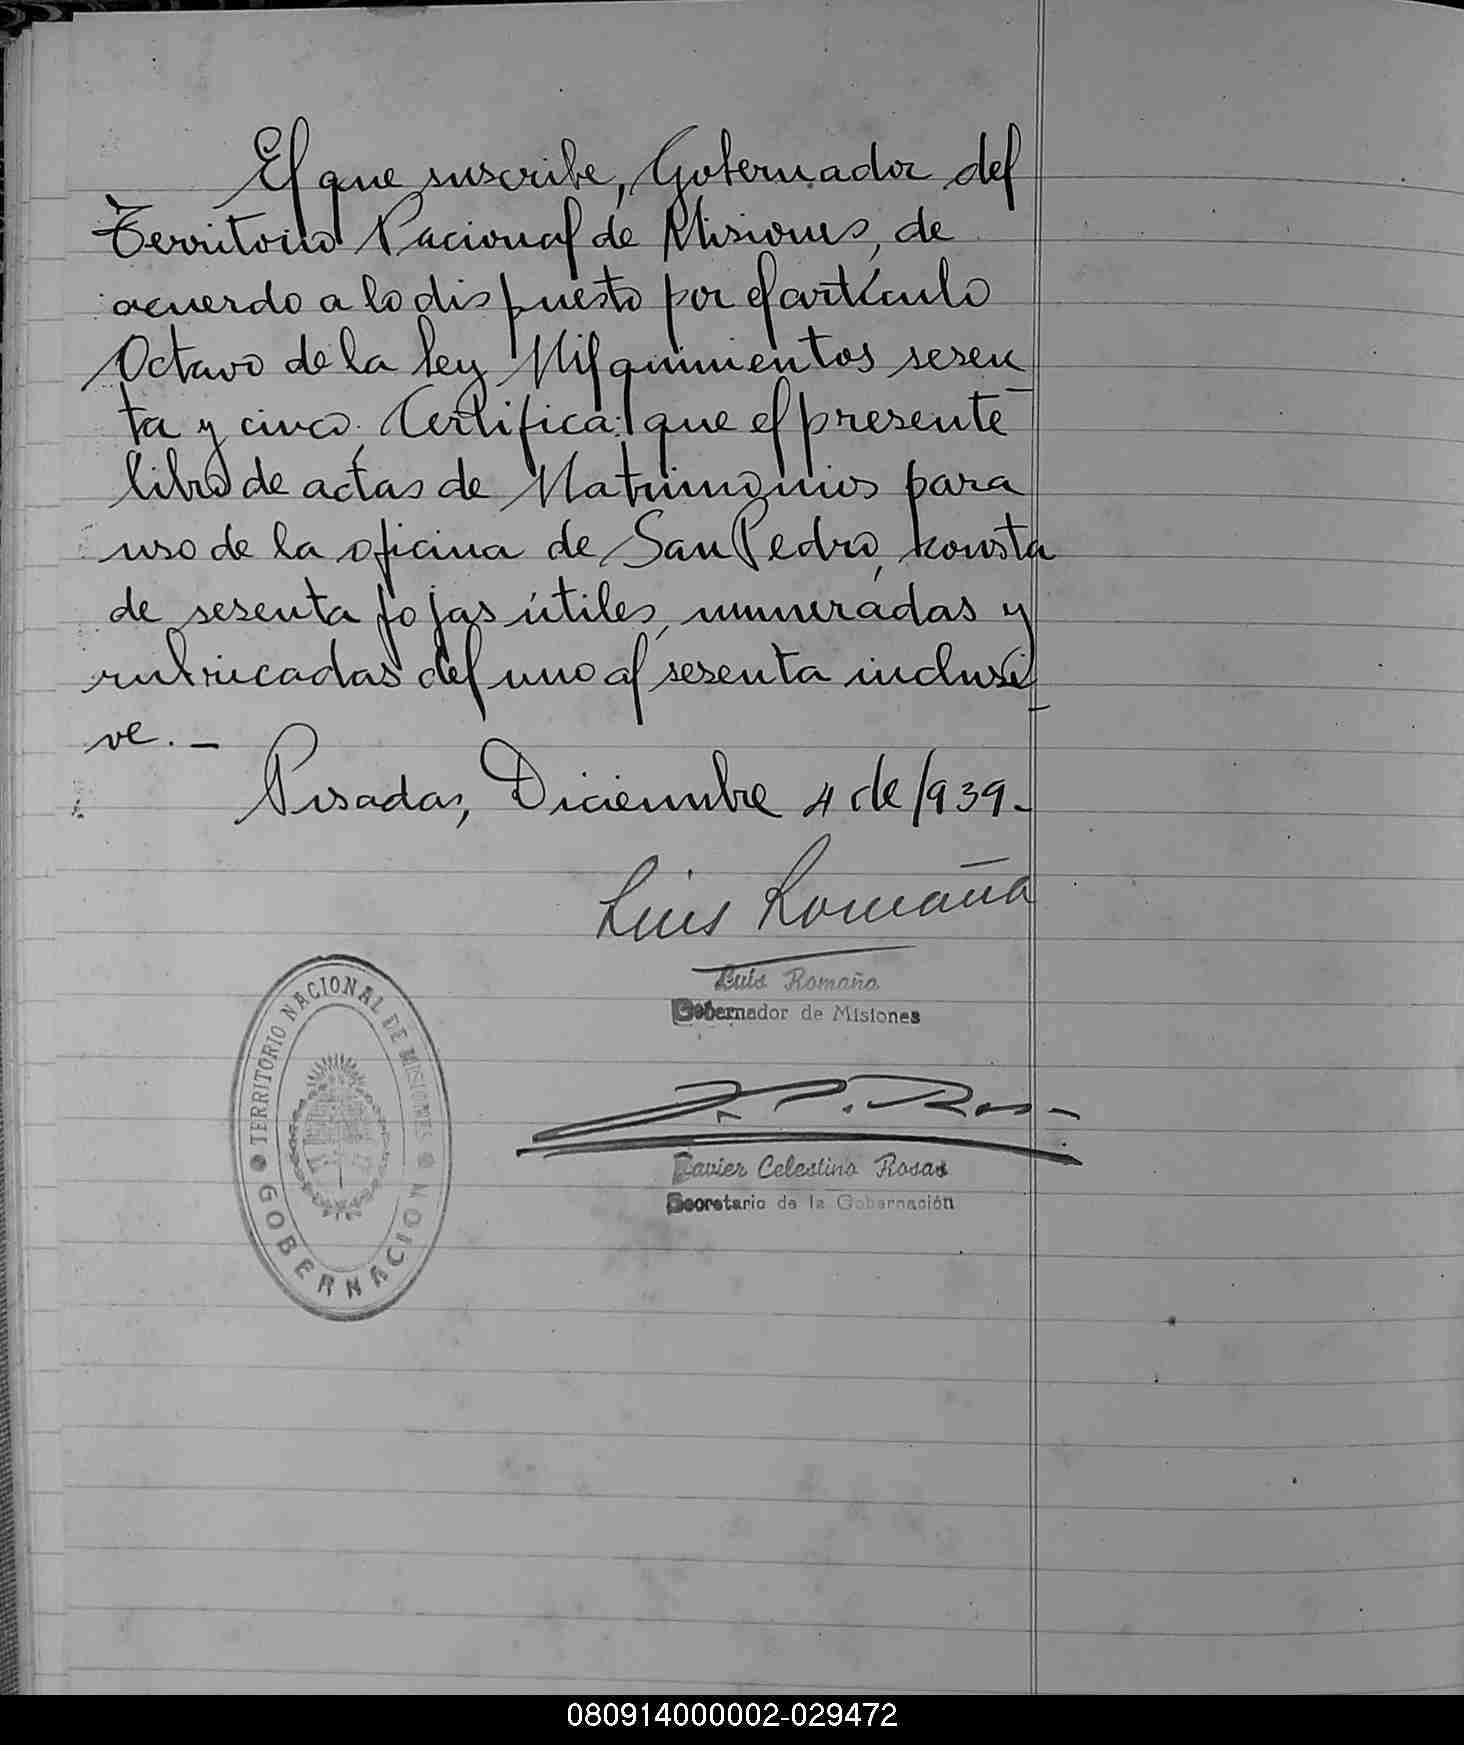 El que suscribe, Gobernador del
Territorio Nacional de Misiones, de
acuerdo a lo dispuesto por el artículo
Octavo de la ley Mil quinientos sesen
ta y cinco, Certifica: que el presente
libro de actas de Matrimonios para
uso de la oficina de San Pedro, consta
de sesenta fojas útiles, numeradas y
rubricadas del uno al sesenta inclusi
ve.-
Posadas, Diciembre 4 de 1939.-
Luis Romaña
Luis Romaña
Gobernador de Misiones
TERRITORIO NACIONAL DE MISIONES
GOBERNACION
J. C. Rosas
Javier Celestino Rosas
Secretario de la Gobernación
080914000002-029472